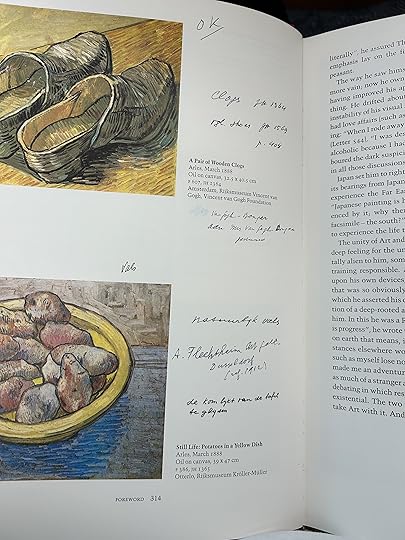 OK
Clogs JH 1364
JH 1569
p. 404
A Pair of Wooden Clogs
Arles, March 1888
Oil on canvas, 32.5 x 40.5 cm
F 607, JH 1364
Amsterdam, Rijksmuseum Vincent van
Gogh, Vincent van Gogh Foundation
van Gogh - Bonger
Vals
natuurlijk vals
A. Flechtheim
de kom lijkt van de tafel
te glijden
Still Life: Potatoes in a Yellow Dish
Arles, March 1888
Oil on canvas, 39 x 47 cm
F 386, JH 1365
Otterlo, Rijksmuseum Kröller-Müller
FOREWORD 314
literally", he assured Th
emphasis lay on the
peasant.
The way he saw him
more vain; now he own
having improved his ap
ing. He drifted about
instability of his visual
had love affairs (such as
ing: "When I rode away
(Letter 544). "I was
alcoholic because I had
boured the dark suspicio
in all those discussions
Japan set him to right
its bearings from Japan
experience the Far Ea
"Japanese painting is h
enced by it, why th
facsimile – the south?"
to experience the life
The unity of Art and
deep feeling for the un
tally alien to him, some
training responsible.
upon his own devices,
that was so obviously
which he asserted his c
tion of a deep-rooted a
him. In this he was a
is progress", he wrote
on earth that means, i
stances elsewhere wo
such as myself lose no
made me an adventure
as much of a stranger a
debating in which exist
existential. The two
take Art with it. And